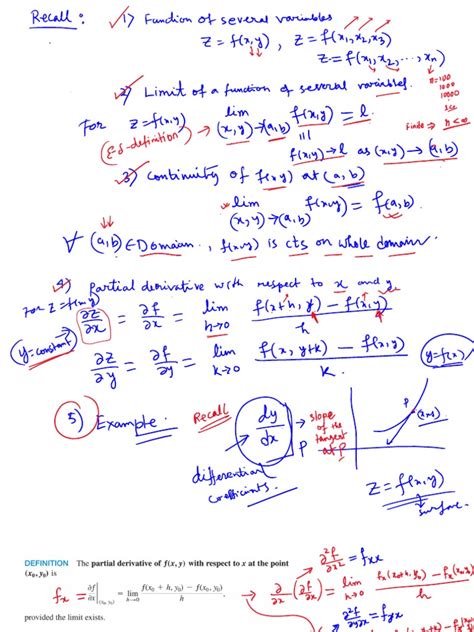 Recall : 1) Function of several variables
z = f(x,y) , z = f(x₁,x₂,x₃)
z = f(x₁,x₂,...,xₙ)
n=100
1000
10000
2) Limit of a function of several variables.
Finite → n<∞
For z=f(x,y) lim (x,y)→(a,b) f(x,y) = l.
(ε-δ-definition) →
|||
f(x,y)→l as (x,y)→(a,b)
3) continuity of f(x,y) at (a,b)
lim (x,y)→(a,b) f(x,y) = f(a,b).
∀ (a,b) ∈ Domain., f(x,y) is cts on whole domain.
4) Partial derivative with respect to x and y
For z=f(x,y)
∂z/∂x = ∂f/∂x = lim h→0 f(x+h, y) - f(x,y) / h
y=constant
∂z/∂y = ∂f/∂y = lim k→0 f(x, y+k) - f(x,y) / k.
y=f(x)
5) Example. Recall dy/dx → slope of the tangent at P
P
P
differential coefficients.
z = f(x,y)
surface.
DEFINITION The partial derivative of f(x, y) with respect to x at the point
(x₀, y₀) is
∂²f/∂x² = fxx
fx = ∂f/∂x|(x₀, y₀) = lim h→0 f(x₀ + h, y₀) − f(x₀, y₀) / h ,
→ ∂/∂x (∂f/∂x) = lim h→0 fx(x₀+h, y₀) - fx(x₀
provided the limit exists.
∂²f/∂y∂x = fyx